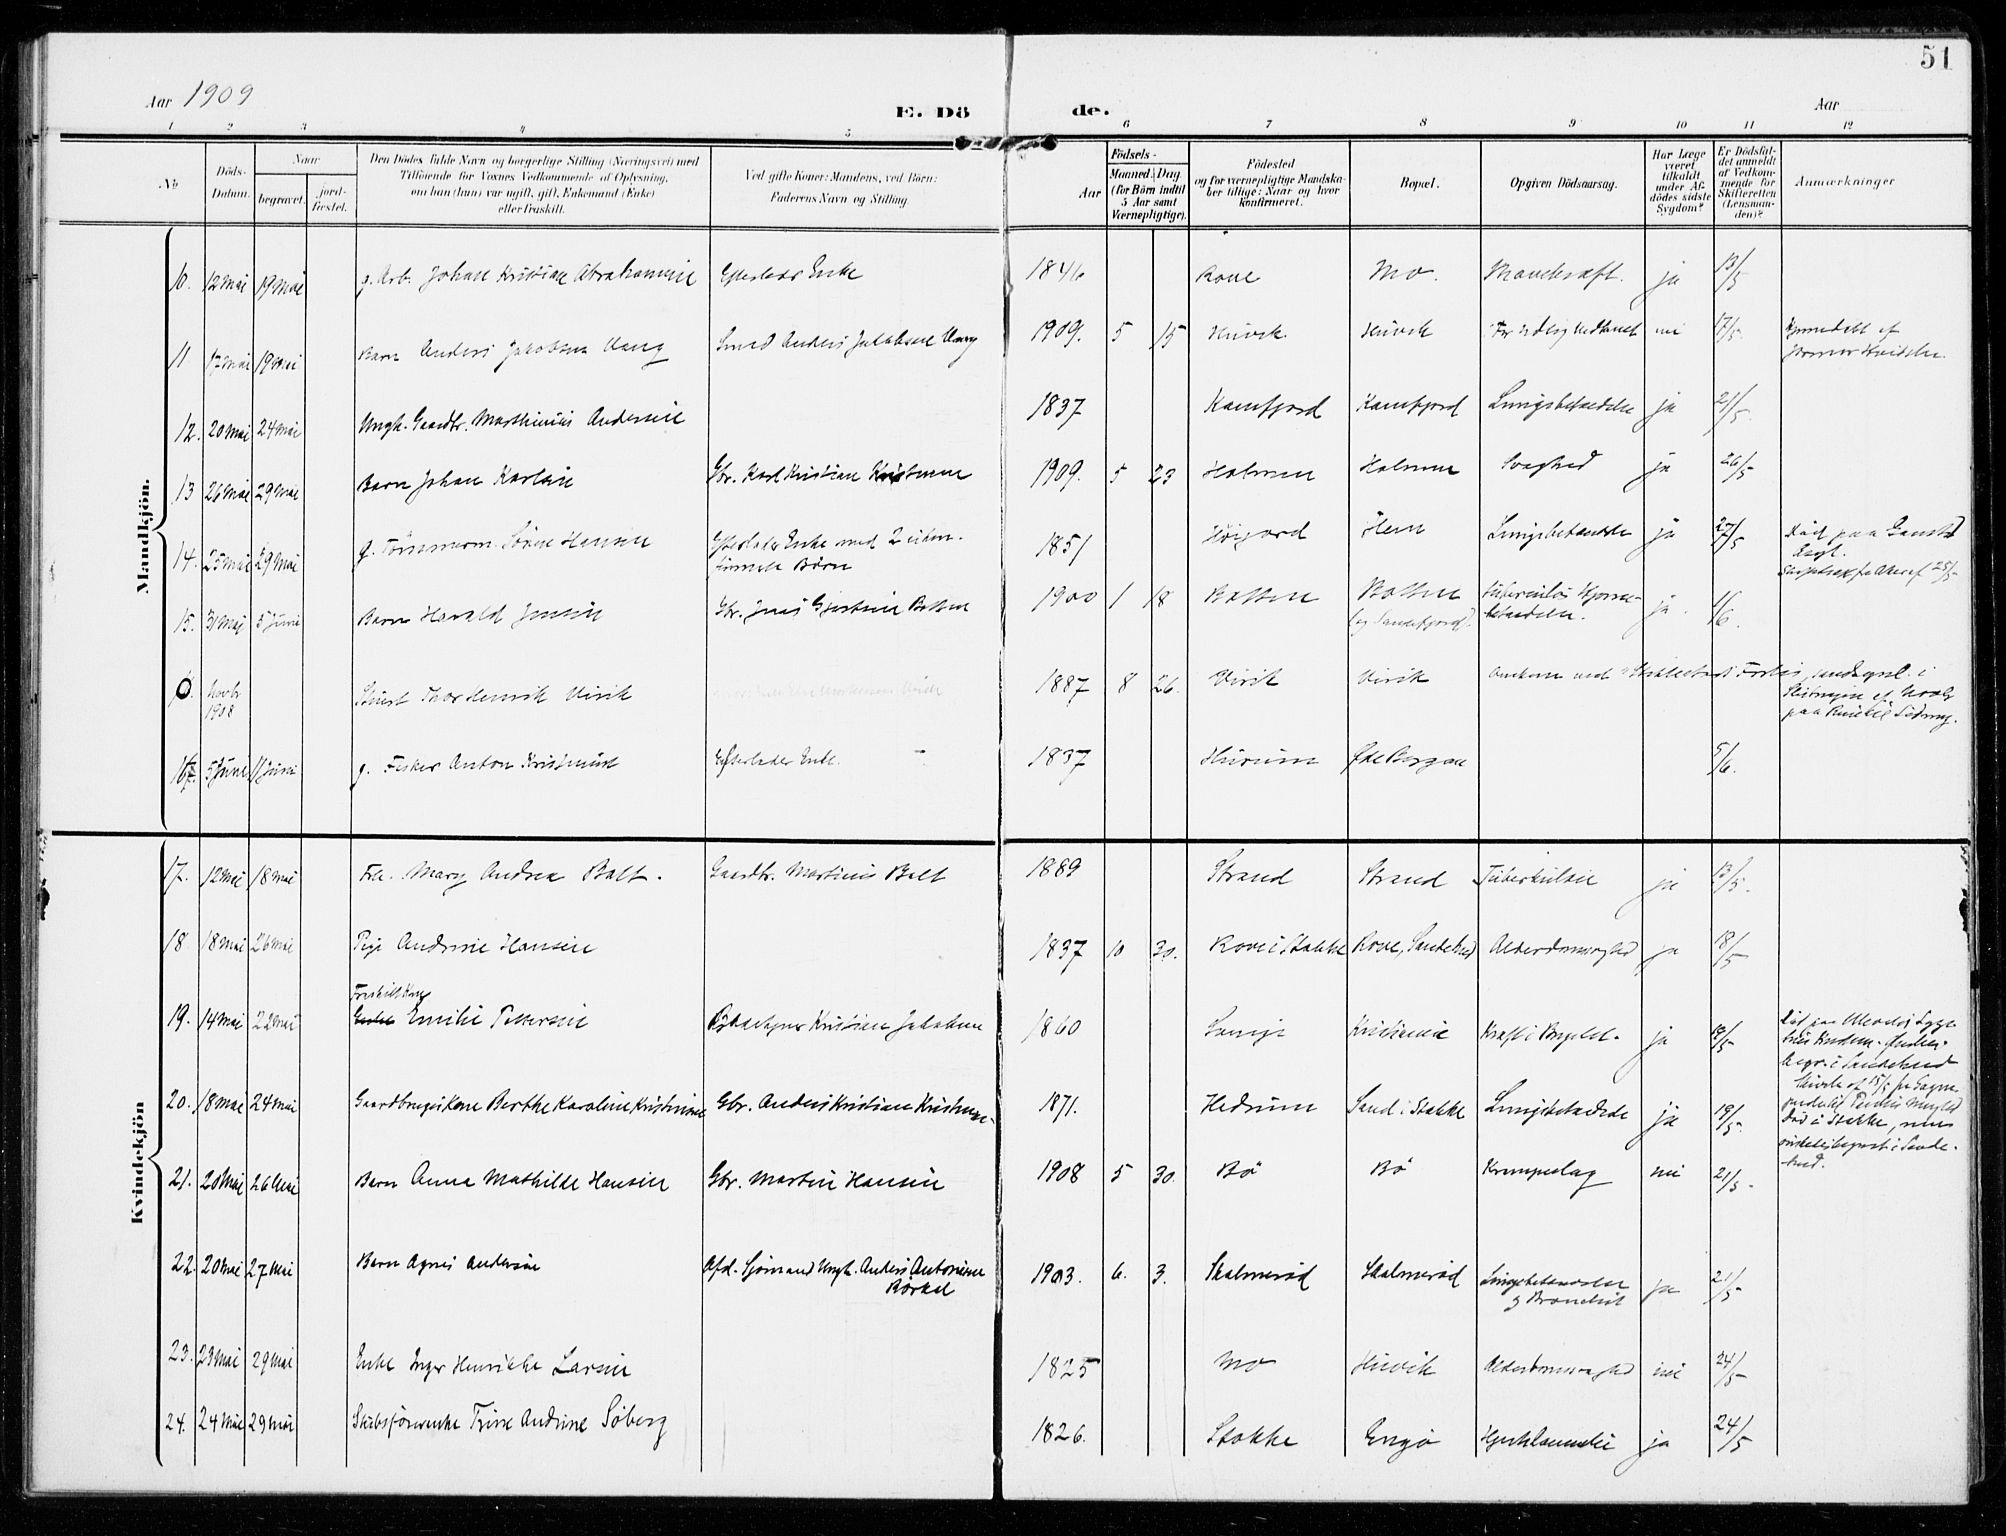 51
Aar 1909
E. Dö
de.
Aar
1 2 3 4 5 6 7 8 9 10 11 12
No
Döds-
Datum.
Naar
begravet.
jord-
fæstet.
Den Dödes fulde Navn og borgerlige Stilling (Næringsvei) med
Tilföiende for Voxnes Vedkommende af Oplysning,
om han (hun) var ugift, gift, Enkemand (Enke)
eller fraskilt.
Ved gifte Koner: Mandens, ved Börn:
Faderens Navn og Stilling
Aar
Födsels-
Maaned. Dag
(for Börn indtil
5 Aar samt
Værnepligtige).
Födested
og for værnepligtige Mandska-
ber tillige: Naar og hvor
konfirmeret.
Bopæl.
Opgiven Dödsaarsag.
Har Læge
været
tilkaldt
under Af-
dödes sidste
Sygdom?
Er Dödsfal-
det anmeldt
af Vedkom-
mende for
Skifteretten
(Lensman-
den)?
Anmærkninger
Mandkjön.
10. 12 mai 19 mai g. Arb. Johan Kristian Abrahamsen Efterlader Enke 1846 Rove Mo. Mavekræft. ja 13/5
11 17 mai 19 mai Barn Anders Jakobsen Vang Smed Anders Jakobsen Vang 1909. 5 15 Huvik Huvik nei 17/5. Hjemmedøbt af
12. 20 mai 24 mai Ungk. Gaardbr. Marthinius Andersen 1837 Kamfjord Kamfjord Lungebetændelse ja 21/5.
13 26 mai 29 mai Barn Johan Karlsen Gbr. Karl Kristian Kristensen 1909. 5 23 Holmen Holmen Svaghed ja 26/5
14. 25 mai 29 mai g. Tömmerm. Sören Hansen Efterlader Enke med 2 ukon-
firmerte Börn 1851 Høijord Hem Lungebetændelse ja 27/5 Död paa Gaustad
Asyl.
15. 31 mai 5 Juni Barn Harald Jensen Gbr. Jens Gjertsen Botten 1900 1 18 Botten Botten
(og Sandefjord). ja. 1/6.
0. Novbr
1908 Thor Henrik Virik 1887 8 26. Virik Virik Omkom med
16. 5 Juni 11 Juni g. Fisker Anton Kristensen Efterlader Enke. 1837 Hurum Øde Bergan 5/6.
Kvindekjön
17. 12 mai 18 mai Frk. Mary Andrea Balt. Gaardbr. Martinius Balt 1889 Strand Strand Tuberkulose ja 13/5.
18. 18 mai 26 mai Pige Andrine Hansen 1837 10 30. Rove i Stokke Rove, Sandeherred Alderdomssvaghed ja 18/5
Fraskilt Kone
19. 14 mai 22 mai Enke Emilie Pettersen Kristian Jakobsen 1860 Kristiania Kræft i Brystet. ja 18/5
20. 18 mai 24 mai Gaardbrugerskone Berthe Karoline Kristensen Gbr. Anders Kristian Kristensen. 1871. Hedrum Sand i Stokke Lungebetændelse ja 19/5. Död i Stokke, men
21. 20 mai 26 mai Barn Anna Mathilde Hansen Gbr. Martin Hansen 1908 5 30. Bö Bö Krampeslag nei 21/5.
22. 20 mai 27 mai Barn Agnes Andersen Afd. Sjömand Ungk. Anders Antonsen
1903. 6. 3. Skolmeröd Skolmeröd Lungebetændelse
ja 21/5
23. 23 mai 29 mai Enke Inger Henrikke Larsen 1825 Mo Huvik Alderdomssvaghed nei 24/5
24. 24 mai 29 mai Skibsförerenke Trine Andrine Söberg 1826. Stokke Engö Hjertelammelse ja 24/5